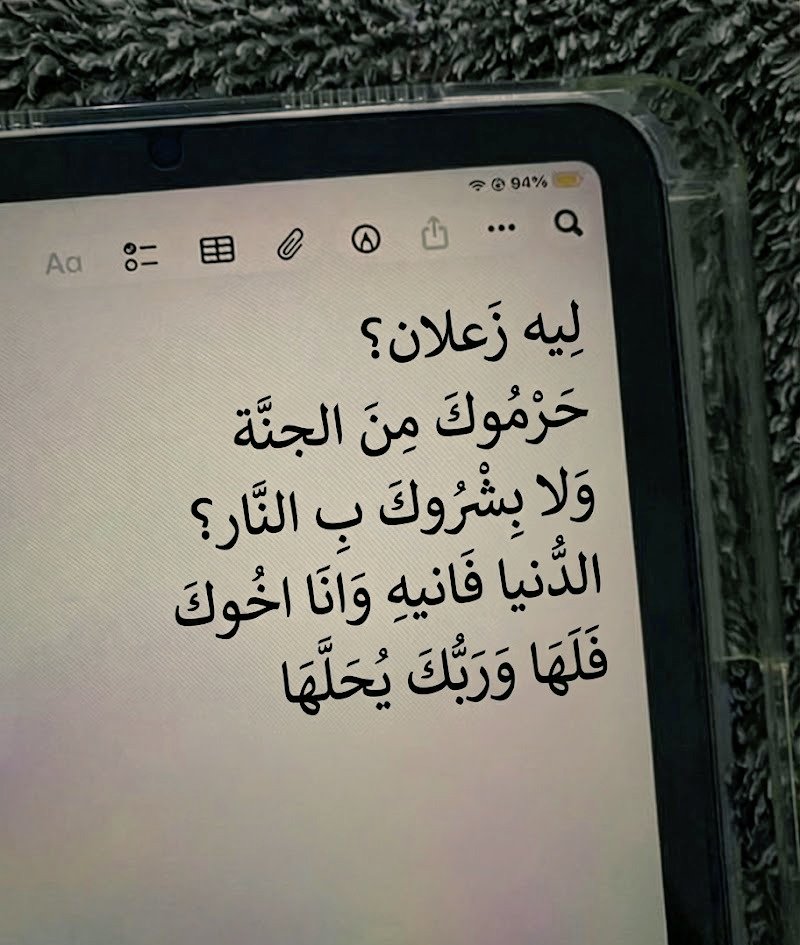 94%
Aa
لِيه زَعلان؟
حَرْمُوكَ مِنَ الجنَّة
وَلا بِشْرُوكَ بِ النَّار؟
الدُّنيا فَانيهِ وَانَا اخُوكَ
فَلَهَا وَرَبُّكَ يُحَلَّهَا